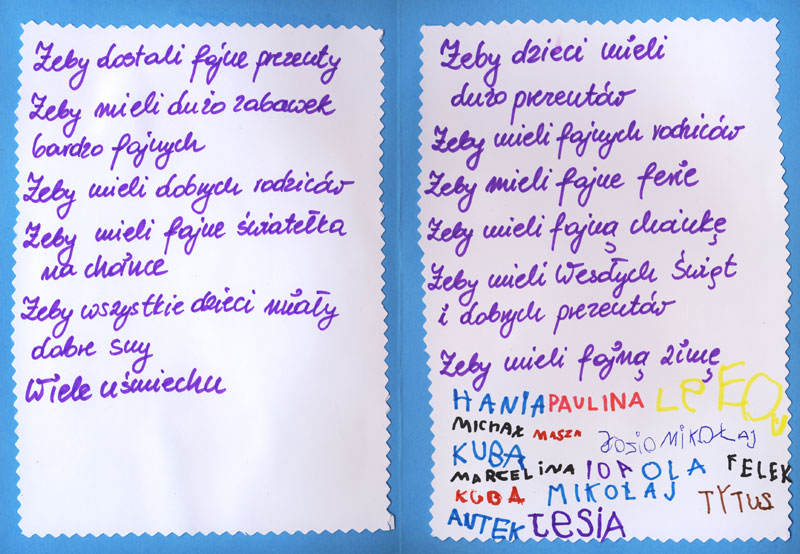 Żeby dostali fajne prezenty
Żeby mieli dużo zabawek
bardzo fajnych
Żeby mieli dobrych rodziców
Żeby mieli fajne światełka
na choince
Żeby wszystkie dzieci miały
dobre sny
Wiele uśmiechu
Żeby dzieci mieli
dużo prezentów
Żeby mieli fajnych rodziców
Żeby mieli fajne ferie
Żeby mieli fajną choinkę
Żeby mieli Wesołych Świąt
i dobrych prezentów
Żeby mieli fajną zimę
HANIA PAULINA
MICHAŁ MASZA MIKOŁAJ
KUBA
MARCELINA IDA OLA FELEK
KUBA MIKOŁAJ TYTUS
ANTEK TESIA